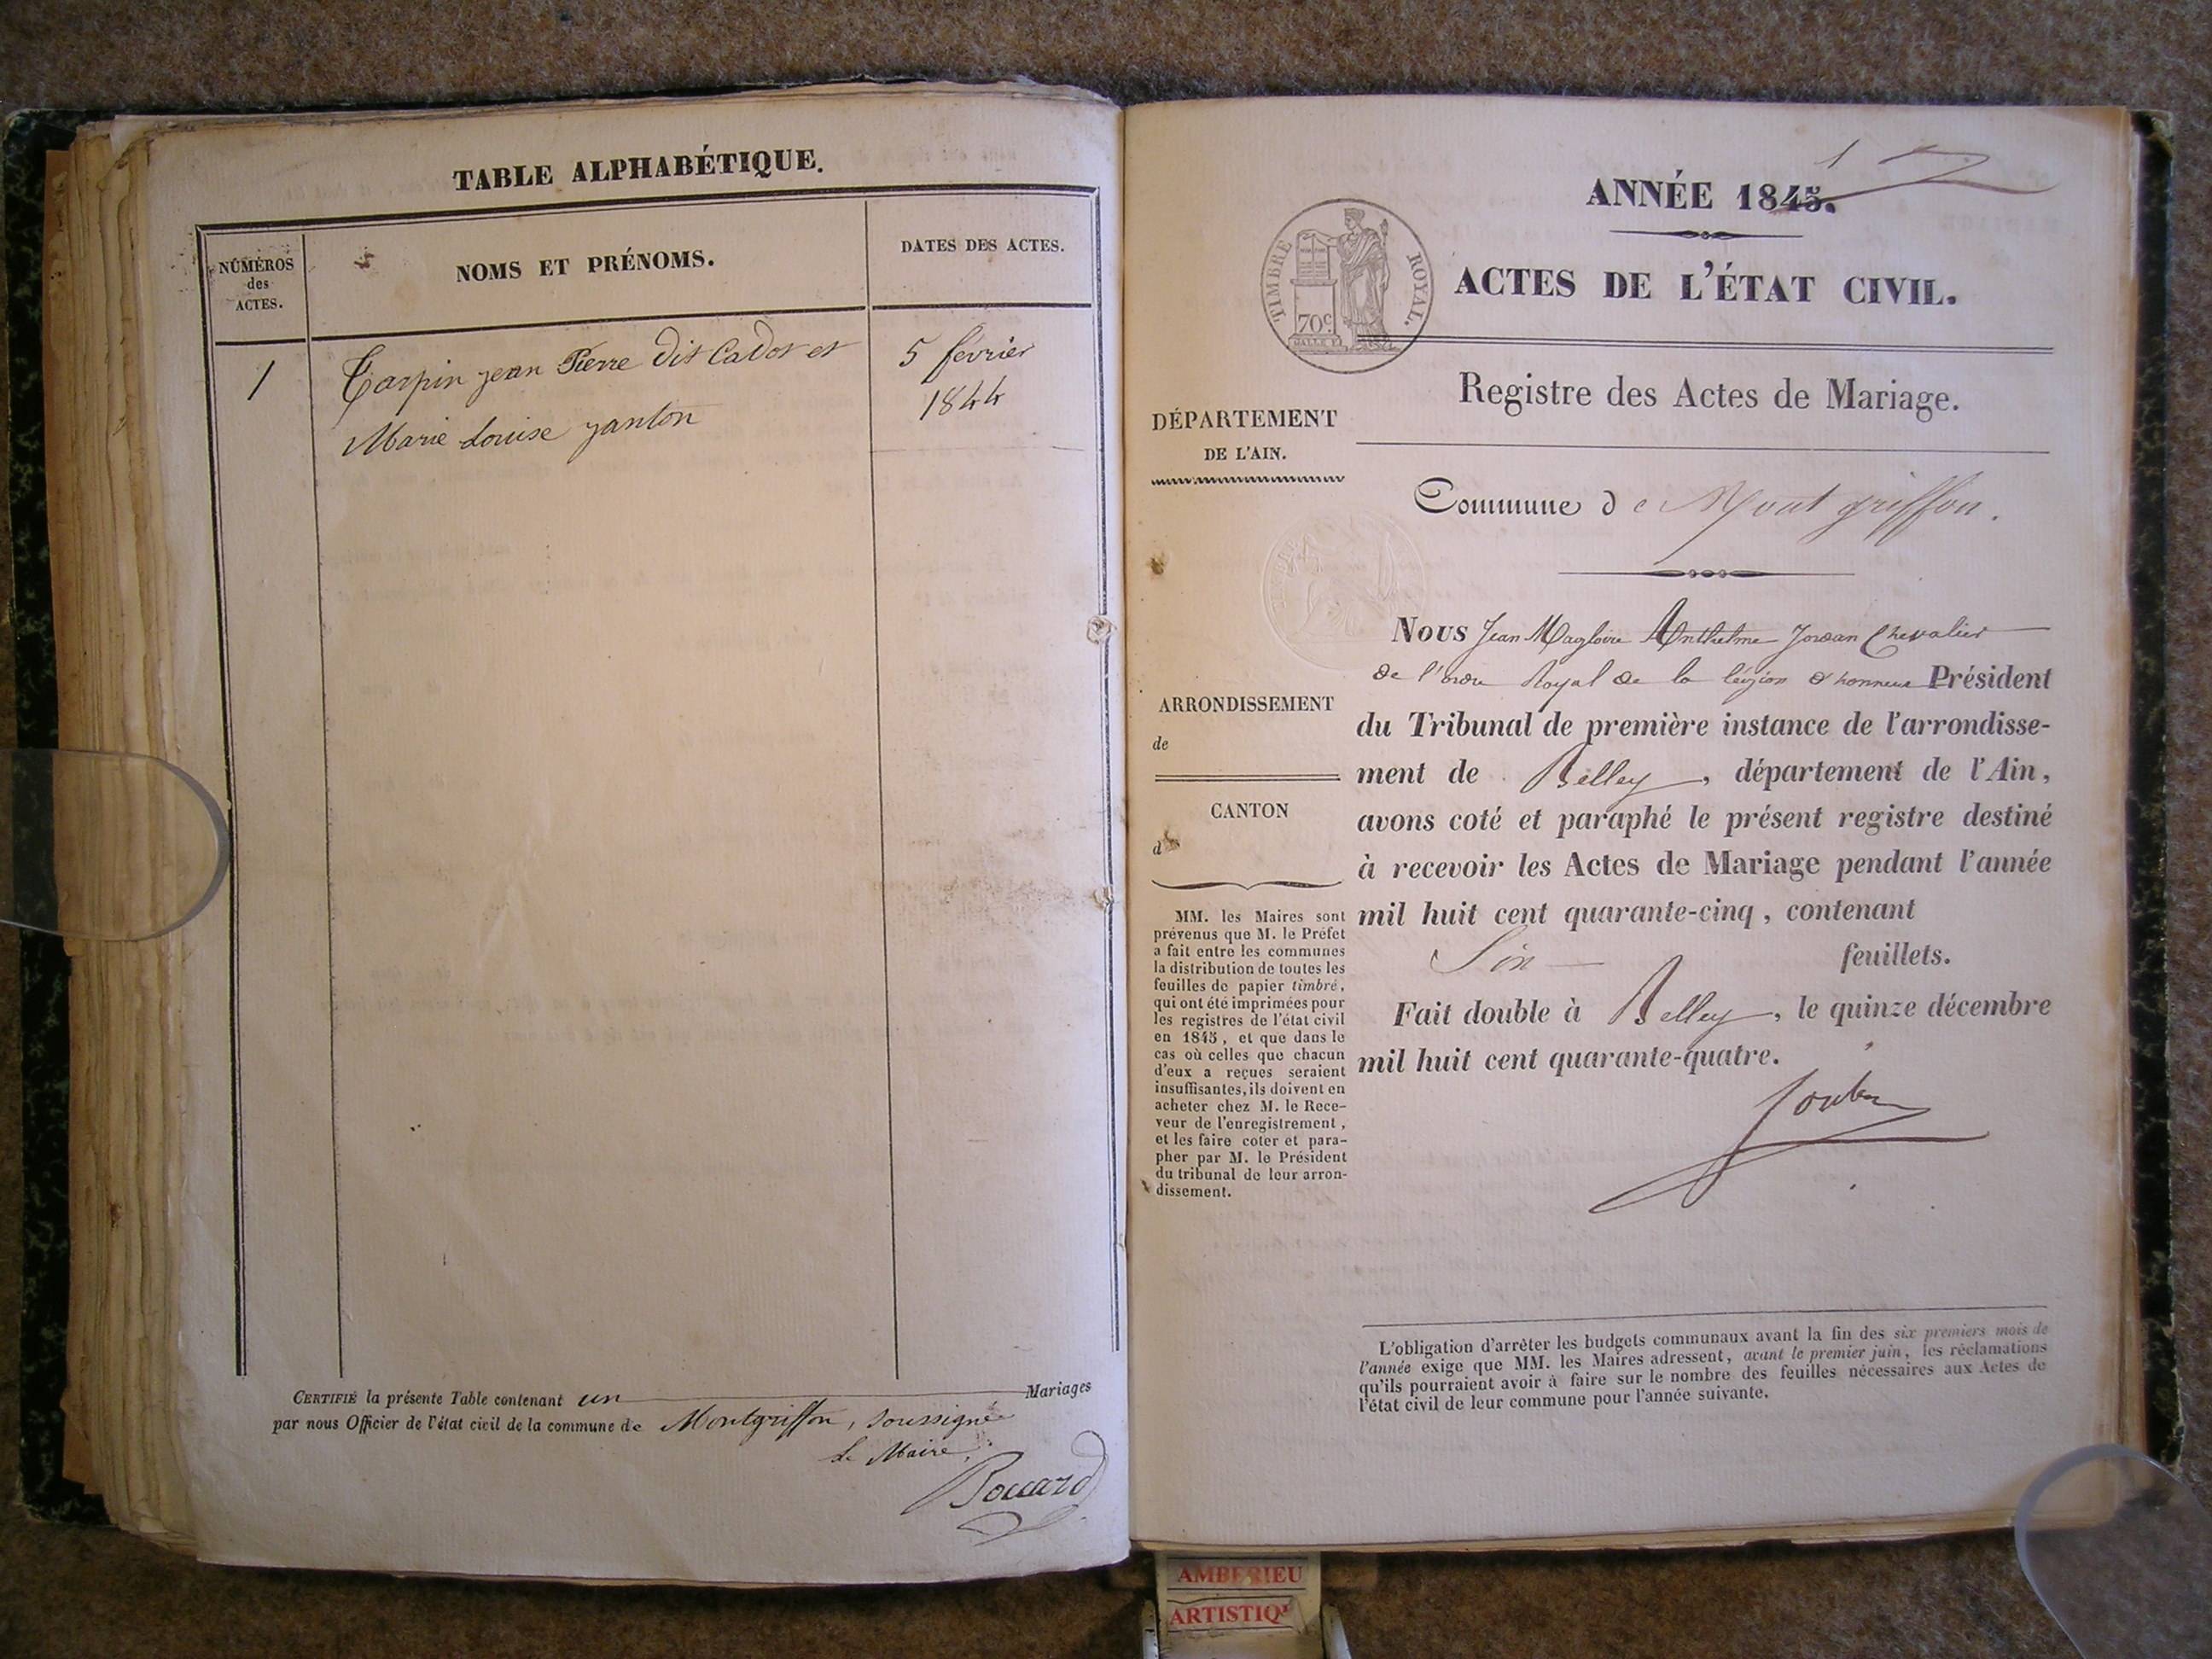 TABLE ALPHABÉTIQUE.
NUMÉROS
des
ACTES.
NOMS ET PRÉNOMS.
DATES DES ACTES.
1
Carpin jean Pierre dit Cadot et
Marie Louise janton
5 février
1844
CERTIFIÉ la présente Table contenant un Mariages
par nous Officier de l'état civil de la commune de Montgriffon, soussigné
Le Maire,
Bouard
1
ANNÉE 1845.
TIMBRE ROYAL.
70c
ACTES DE L'ÉTAT CIVIL.
Registre des Actes de Mariage.
DÉPARTEMENT
DE L'AIN.
Commune de Montgriffon.
Nous Jean Magloire Anthelme Jordan Chevalier
de l'ordre Royal de la légion d'honneur Président
du Tribunal de première instance de l'arrondisse-
ment de Belley, département de l'Ain,
avons coté et paraphé le présent registre destiné
à recevoir les Actes de Mariage pendant l'année
mil huit cent quarante-cinq, contenant
Six feuillets.
Fait double à Belley, le quinze décembre
mil huit cent quarante-quatre.
ARRONDISSEMENT
de
CANTON
d
MM. les Maires sont
prévenus que M. le Préfet
a fait entre les communes
la distribution de toutes les
feuilles de papier timbré,
qui ont été imprimées pour
les registres de l'état civil
en 1845, et que dans le
cas où celles que chacun
d'eux a reçues seraient
insuffisantes, ils doivent en
acheter chez M. le Rece-
veur de l'enregistrement,
et les faire coter et para-
pher par M. le Président
du tribunal de leur arron-
dissement.
L'obligation d'arrêter les budgets communaux avant la fin des six premiers mois de
l'année exige que MM. les Maires adressent, avant le premier juin, les réclamations
qu'ils pourraient avoir à faire sur le nombre des feuilles nécessaires aux Actes de
l'état civil de leur commune pour l'année suivante.
AMBERIEU
ARTISTIQU